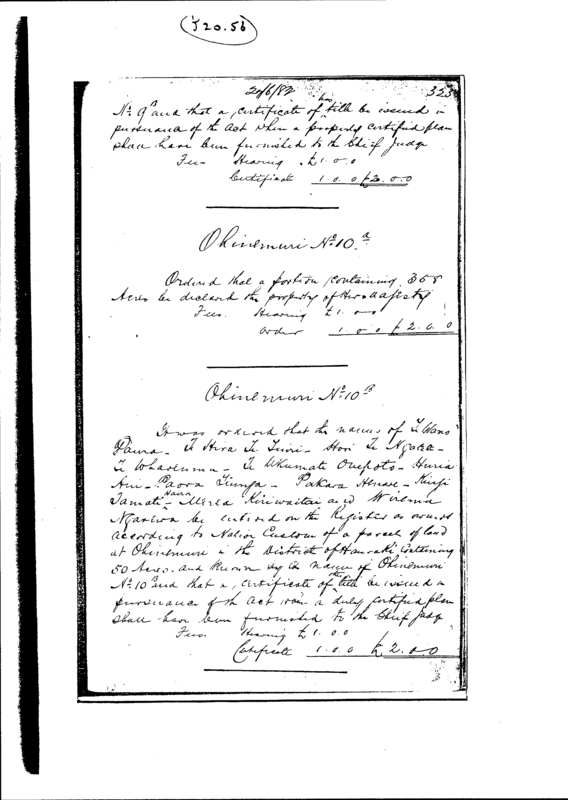 J20.56
20/6/82
323
No. 9a and that a certificate of his title be issued in
pursuance of the Act when a properly certified plan
shall have been furnished to the Chief Judge
Fees Hearing £1.0.0
Certificate 1.0.0 £2.0.0
Ohinemuri No. 10.a
Ordered that a portion containing 358
Acres be declared the property of Her Majesty
Fees. Hearing £1.0.0
Order 1.0.0 £2.0.0
Ohinemuri No. 10 B
It was ordered that the names of Te
Te Hira Te Tuiri - Hori Te
Te Wharenui - Te Onepoto - Huria
Paora Tiunga - Pakara -
Tamati Haira - Merea and Wiremu
be entered on the Register as owners
according to Native Custom of a parcel of land
at Ohinemuri in the District of Hauraki Containing
50 Acres and known by the name of Ohinemuri
No. 10 B and that a certificate of their title be issued in
pursuance of the Act when a duly certified plan
shall have been furnished to the Chief Judge
Fees. Hearing £1.0.0
Certificate 1.0.0 £2.0.0